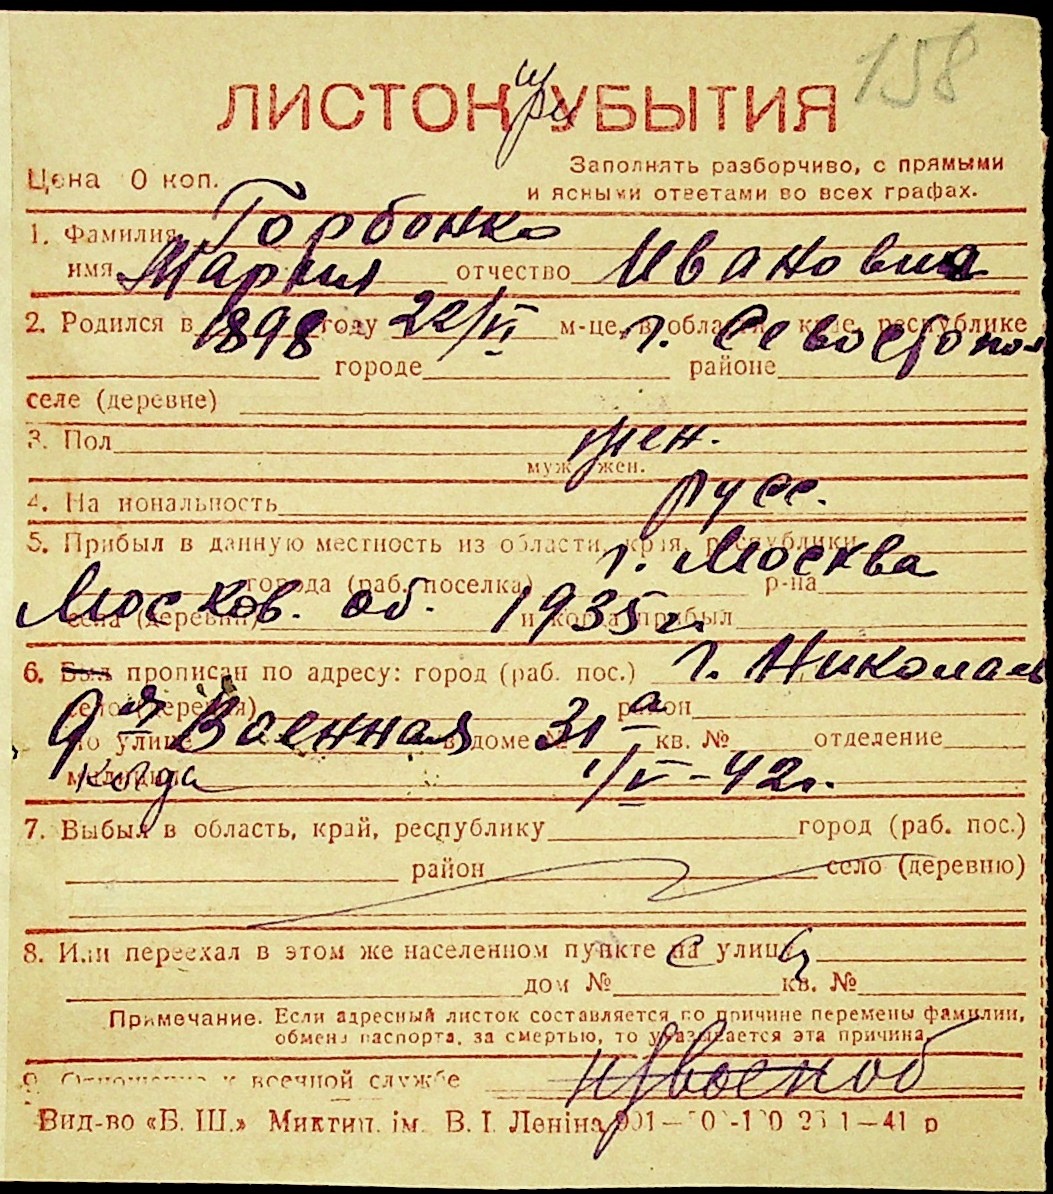 158
ЛИСТОК при УБЫТИЯ
Цена 0 коп.
Заполнять разборчиво, с прямыми
и ясными ответами во всех графах.
1. Фамилия Горбонко
имя Мария отчество Ивановна
2. Родился в 1898 году 22/VI м-це, в области, крае, республике
г. Севостопол
городе районе
селе (деревне)
3. Пол жен.
муж жен.
4. На иональность русс.
5. Прибыл в данную местность из области, края, республики
г. Москва
города (раб. поселка) р-на
Москов. об. 1935 г.
села (деревни) и когда прибыл
6. Был прописан по адресу: город (раб. пос.) г. Николаев
село (деревня) район
9ая Военная 31а
по улице в доме № кв. № отделение
милиции когда 1/V-42г.
7. Выбыл в область, край, республику город (раб. пос.)
район село (деревню)
8. Или переехал в этом же населенном пункте на улицу
дом № кв. №
Примечание. Если адресный листок составляется по причине перемены фамилии,
обмена паспорта, за смертью, то указывается эта причина.
9. Отношение к военной службе н/военоб
Вид-во «Б. Ш.» Миктип. ім. В. І. Леніна